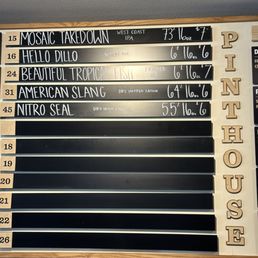 15 MOSAIC TAKEDOWN WEST COAST IPA 7.3 16oz $7
16 HELLO DILLO 6 16oz $6
24 BEAUTIFUL TROPICAL FISH 6 16oz $7
31 AMERICAN SLANG 6.4 16oz $6
45 NITRO SEAL 5.5 16oz $6
18
19
20
21
22
26
PINTHOUSE